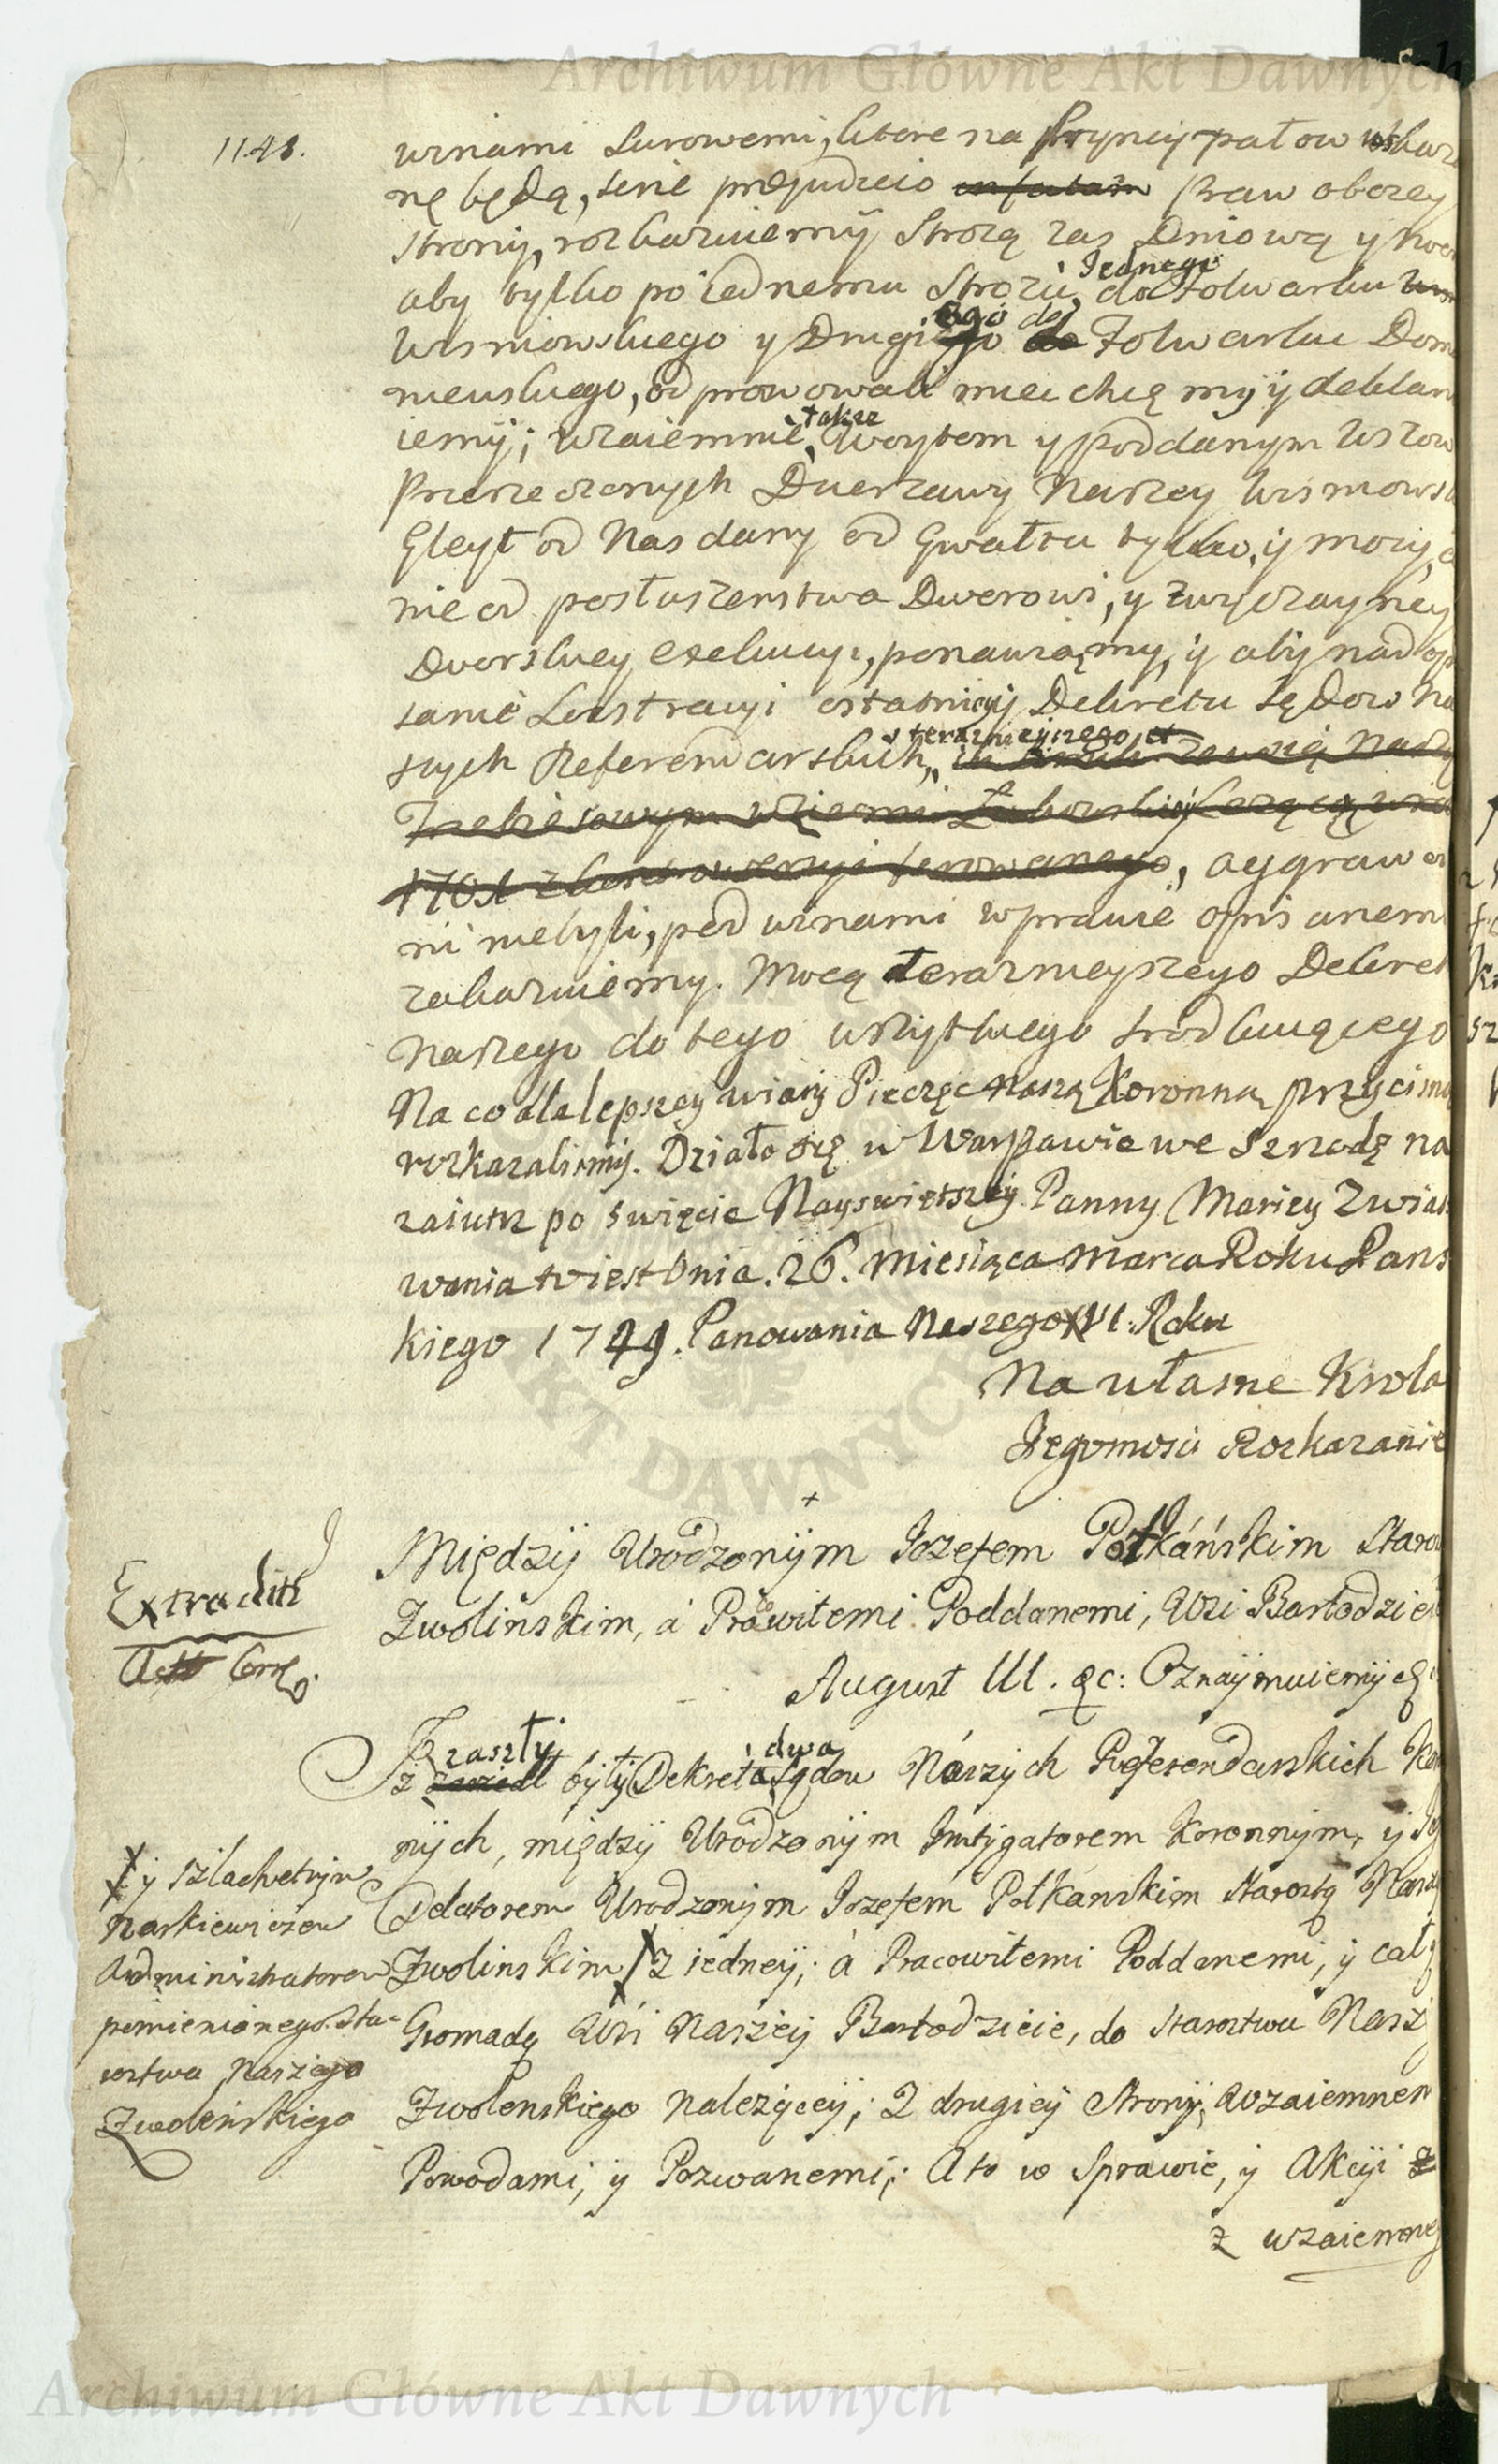 Archiwum Główne Akt Dawnych
1148.
winami surowemi, ktore na Pryncypałow wskaza
ne będą, sine prejudicio Praw oboiey
strony, rozkazuiemy Strozą zas Dniową y noc
aby tylko po iednemu Strozu, Jednego do Folwarku
Wisniowskiego y Drugiego do Folwarku Dom
nieuskiego, odprawowali miec chcą my y deklaru
iemy; wzaiemnie, także Woytom y poddanym Wsiow
Przerzeczonych Dzierzawy Naszey Wisniows
Gleyt od Nas dany od Gwałtu tylko, y mocy, a
nie od posłuszenstwa Dworowi, y zwyczayney
Dworskiey exekucyi, ponawiamy, y aby nad opi
sanie Lustracyi ostatniey Dekretu Sądow Na
szych Referendarskich, teraznieyszego
aggrawo
ni niebyli, pod winami w prawie opisanemi
zakazuiemy. Mocą teraznieyszego Dekret
Naszego do tego wszytkiego srodkuiącego
Na co dla lepszey wiary Pieczęc Naszą Koronną przycisną
rozkazalismy. Działo się w Warszawie we Srzodę na
zaiutrz po Swięcie Nayswiętszey Panny Mariey Zwias
wania to iest Dnia. 26. Miesiąca Marca Roku Pans
kiego 1749. Panowania Naszego XVI. Roku
Na własne Krola
Jegomosci Rozkazanie
Extradit
Między Urodzonym Jozefem Potkáńskim Staros
Zwolinskim, á Prácowitemi Poddanemi, Wsi Bartodziei
August III. &c: Oznaymuiemy
Iz zaszły były Dekreta dwa Sądow Nászych Referendarskich Ko
nych, między Urodzonym Instygatorem Koronnym, y Je
Delatorem Urodzonym Jozefem Potkanskim Starostą Nasz
Zwolinskim X z iedney; á Pracowitemi Poddanemi, y całą
Gromadą Wsi Naszey Bartodzieie, do Starostwa Nasz
Zwolenskiego należącey; z drugiey strony, wzaiemnem
Powodami, y Pozwanemi; A to w Sprawie, y Akcyi
z wzaiemney
X y Szlachetnym
Markiewiczem
Administratorem
pomienionego Sta-
rostwa Naszego
Zwoleńskiego
Archiwum Główne Akt Dawnych